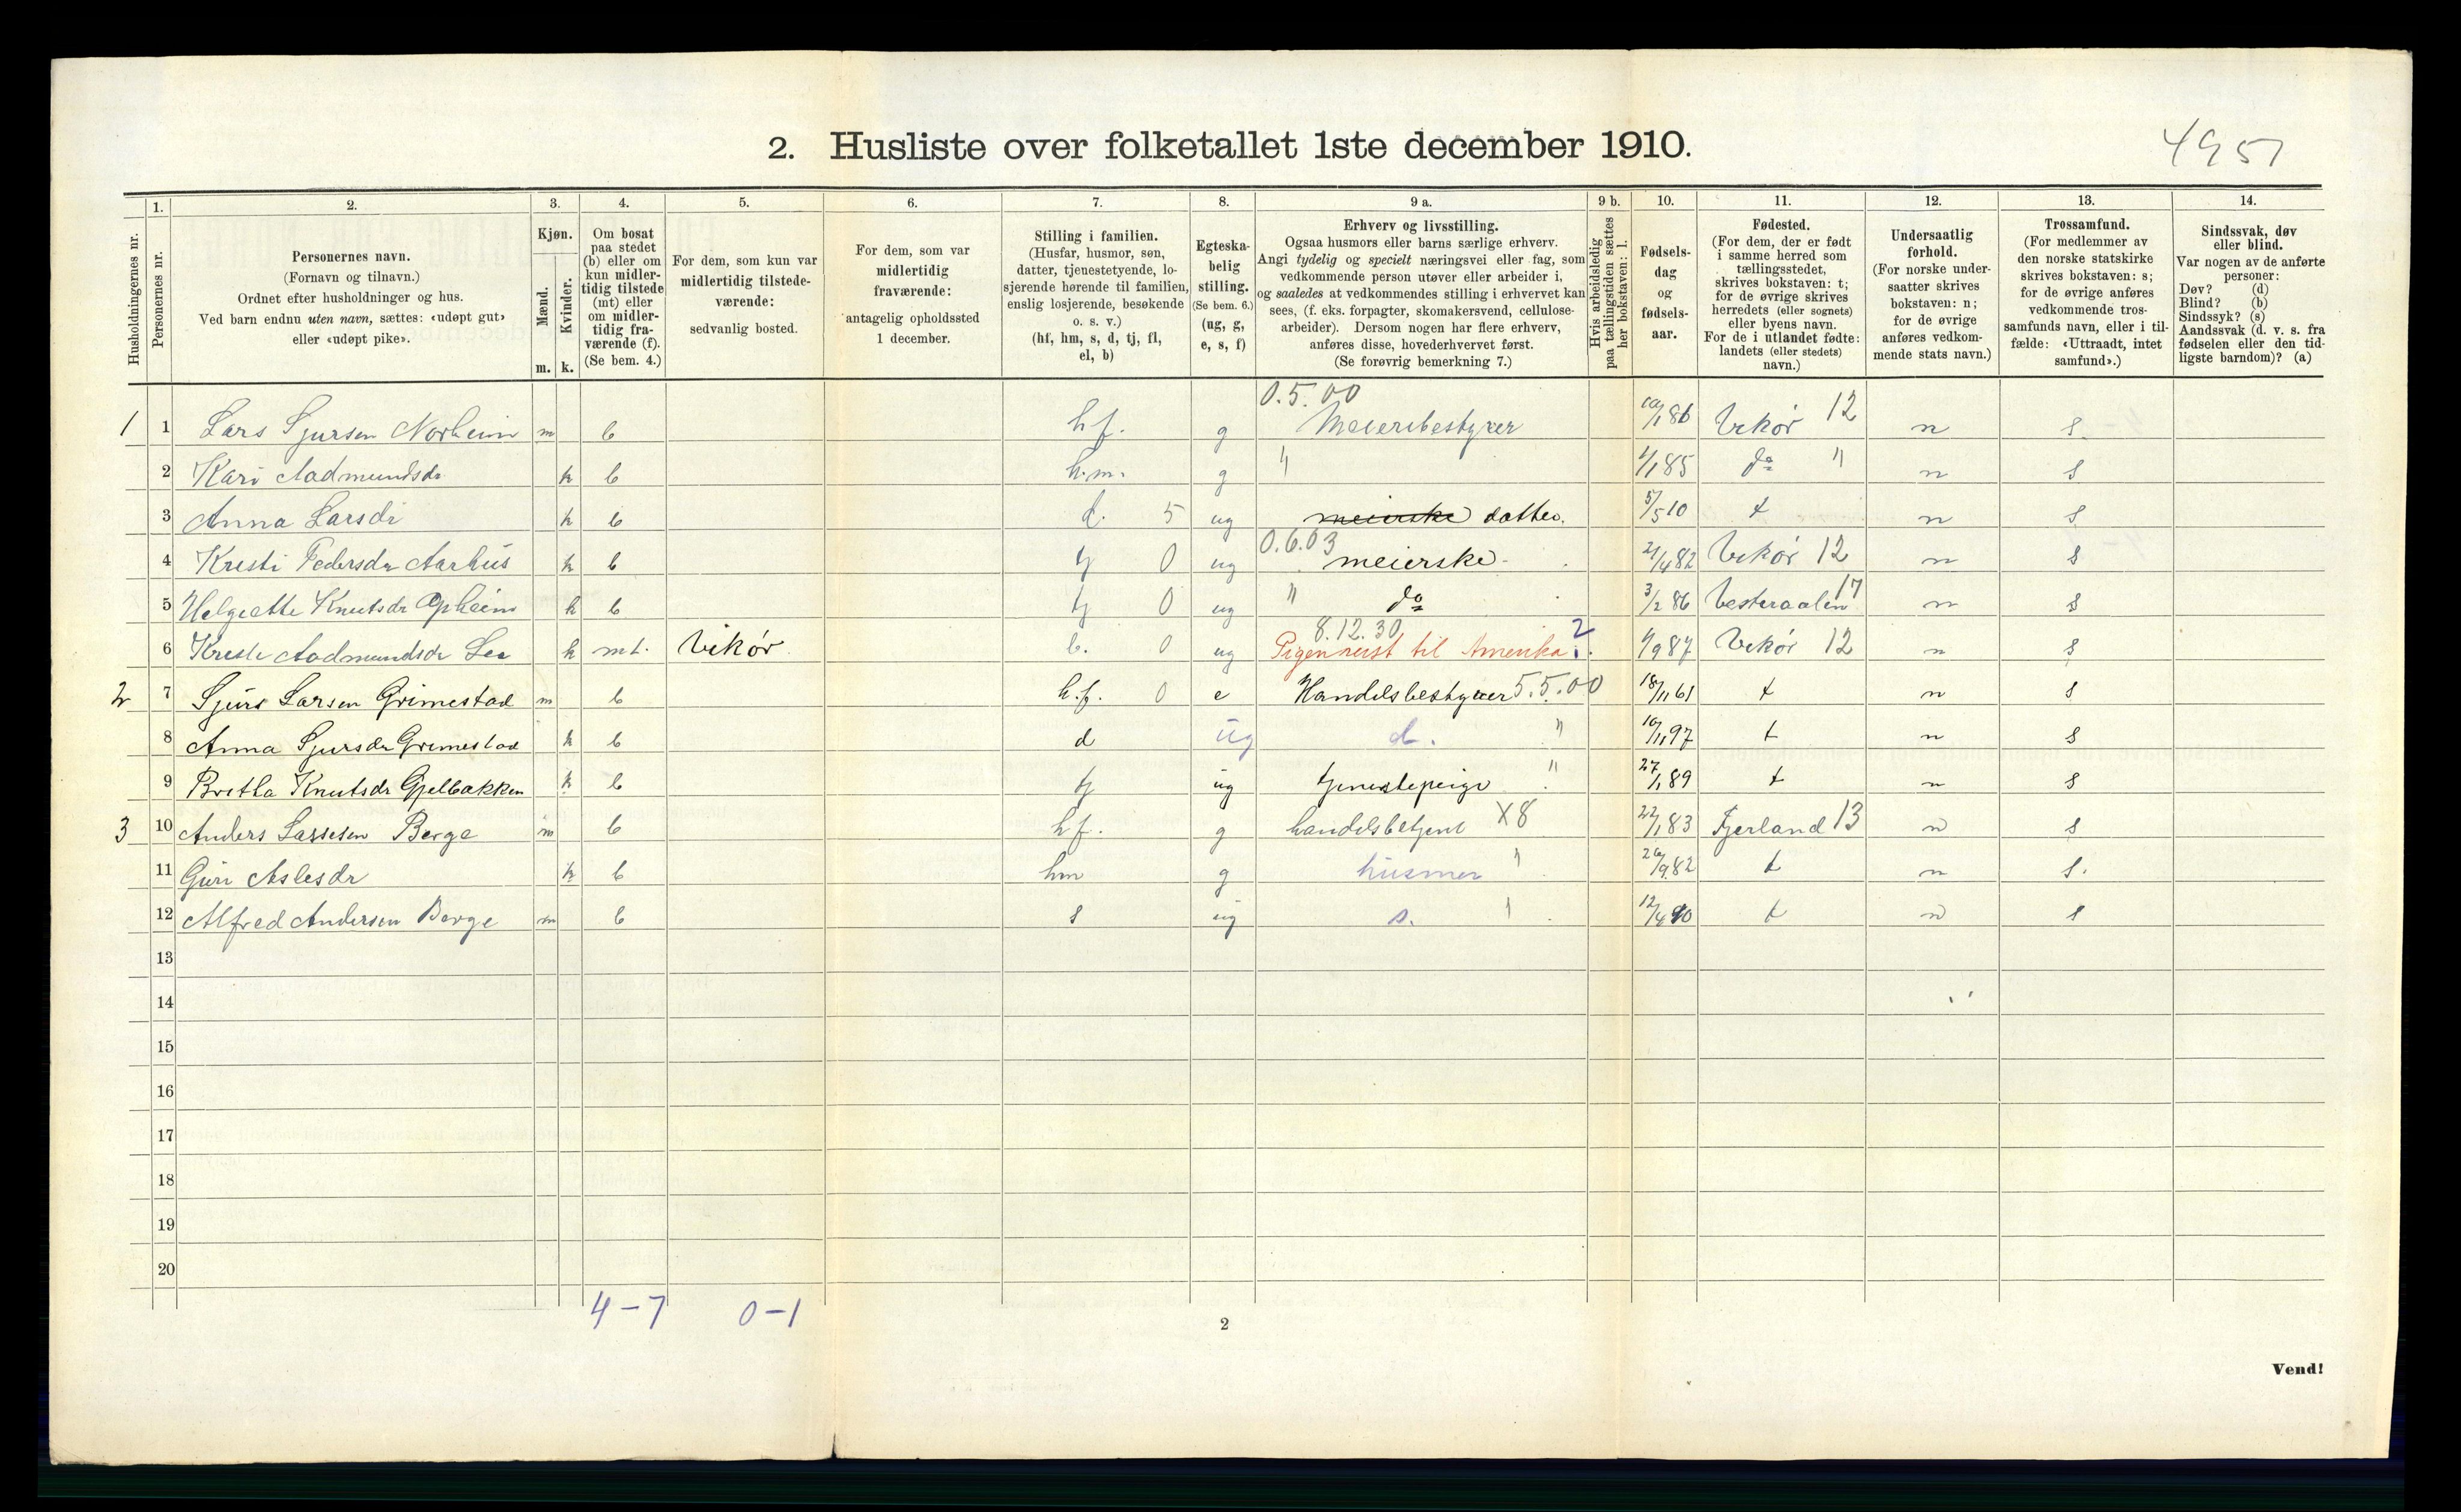 4951
2. Husliste over folketallet 1ste december 1910.
Husholdningernes nr.
1. Personernes nr.
2. Personernes navn.
(Fornavn og tilnavn.)
Ordnet efter husholdninger og hus.
Ved barn endnu uten navn, sættes: «udøpt gut»
eller «udøpt pike».
3. Kjøn.
Mænd. Kvinder.
m. k.
4. Om bosat
paa stedet
(b) eller om
kun midler-
tidig tilstede
(mt) eller
om midler-
tidig fra-
værende (f).
(Se bem. 4.)
5. For dem, som kun var
midlertidig tilstede-
værende:
sedvanlig bosted.
6. For dem, som var
midlertidig
fraværende:
antagelig opholdssted
1 december.
7. Stilling i familien.
(Husfar, husmor, søn,
datter, tjenestetyende, lo-
sjerende hørende til familien,
enslig losjerende, besøkende
o. s. v.)
(hf, hm, s, d, tj, fl,
el, b)
8. Egteska-
belig
stilling.
(Se bem. 6.)
(ug, g,
e, s, f)
9 a. Erhverv og livsstilling.
Ogsaa husmors eller barns særlige erhverv.
Angi tydelig og specielt næringsvei eller fag, som
vedkommende person utøver eller arbeider i,
og saaledes at vedkommendes stilling i erhvervet kan
sees, (f. eks. forpagter, skomakersvend, cellulose-
arbeider). Dersom nogen har flere erhverv,
anføres disse, hovederhvervet først.
(Se forøvrig bemerkning 7.)
9 b. Hvis arbeidsledig
paa tællingstiden sættes
her bokstaven: l.
10. Fødsels-
dag
og
fødsels-
aar.
11. Fødested.
(For dem, der er født
i samme herred som
tællingsstedet,
skrives bokstaven: t;
for de øvrige skrives
herredets (eller sognets)
eller byens navn.
For de i utlandet fødte:
landets (eller stedets)
navn.)
12. Undersaatlig
forhold.
(For norske under-
saatter skrives
bokstaven: n;
for de øvrige
anføres vedkom-
mende stats navn.)
13. Trossamfund.
(For medlemmer av
den norske statskirke
skrives bokstaven: s;
for de øvrige anføres
vedkommende tros-
samfunds navn, eller i til-
fælde: «Uttraadt, intet
samfund».)
14. Sindssvak, døv
eller blind.
Var nogen av de anførte
personer:
Døv? (d)
Blind? (b)
Sindssyk? (s)
Aandssvak (d. v. s. fra
fødselen eller den tid-
ligste barndom)? (a)
0.5.00
1 1 Lars Sjursen Norheim m b hf. g Meieribestyrer 10/1 86 Vikør 12 n s.
2 Kari Aadmundsdr k b h.m. g " 1/1 85 do " n s
3 Anna Larsdr k b d. 5 ug meierske datter. 5/5 10 t n s
4 Kristi Pedersdr Aarhus k b tj 0 ug 0.6.03 meierske 21/4 82 Vikør 12 n s
5 Helgeatte Knutsdr Opheim k b tj 0 ug " do 3/2 86 Vesteraalen 17 n s
8.12.30 2
6 Kristi Aadmundsdr Lea k mt. Vikør b. 0 ug Pigen reist til Amerika 1/9 87 Vikør 12 n s
2 7 Sjurs Larsen Grimestad m b h.f. 0 e Handelsbestyrer 5.5.00 18/11 61 t n s
8 Anna Sjursdr Grimestad k b d ug d. " 10/11 97 t n s
9 Britha Knutsdr Gjelbakken k b tj ug tjenestepige " 27/1 89 t n s
3 10 Anders Lassesen Berge m b hf. g handelsbetjent X8 22/1 83 Fjerland 13 n s
11 Guri Aslesdr k b hm g husmor " 26/9 82 t n s.
12 Alfred Andersen Berge m b s ug s. " 12/4 10 t n s
13
14
15
16
17
18
19
20
4-7 0-1
2
Vend!